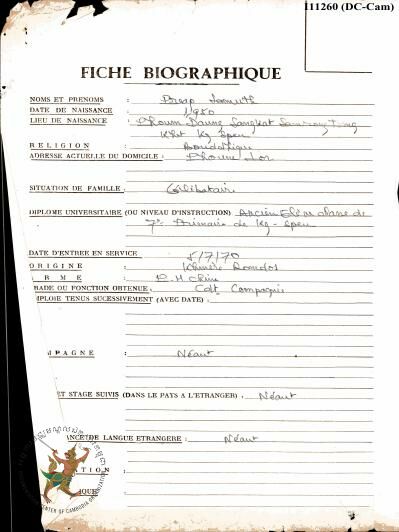 111260 (DC-Cam)
FICHE BIOGRAPHIQUE
NOMS ET PRENOMS :
DATE DE NAISSANCE : 1950
LIEU DE NAISSANCE : Phoum Daung Sangkat
Khet Kg Speu
RELIGION : Bouddhique
ADRESSE ACTUELLE DU DOMICILE : Phoum Lor
SITUATION DE FAMILLE : Célibataire
DIPLOME UNIVERSITAIRE (OU NIVEAU D'INSTRUCTION) Ancien Elève classe de
7è Primaire de Kg-Speu
DATE D'ENTREE EN SERVICE 5/7/70
ORIGINE : Khmère Romdos
RME :
RADE OU FONCTION OBTENUE : Cdt Compagnie
MPLOIE TENUS SUCESSIVEMENT (AVEC DATE) :
MPAGNE : Néant
ET STAGE SUIVIS (DANS LE PAYS A L'ETRANGER) : Néant
ANCE DE LANGUE ETRANGERE : Néant
ATION :
IQUE
CENTER OF CAMBODIA